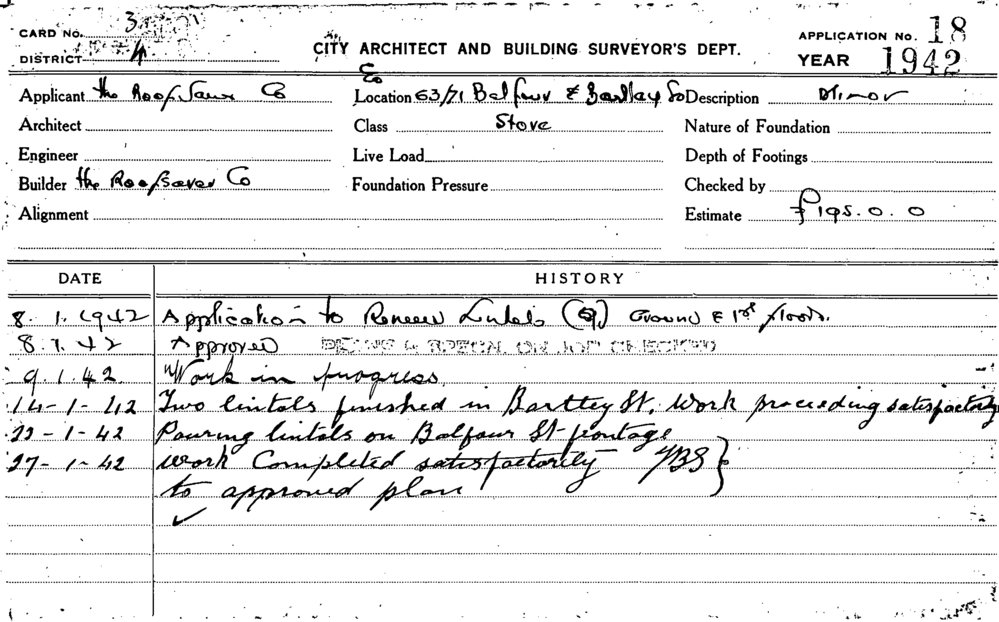 CARD No. 3
DISTRICT 4
CITY ARCHITECT AND BUILDING SURVEYOR'S DEPT.
APPLICATION No. 18
YEAR 1942
Applicant the Roof Saver Co
Location 63/71 Balfour & Bartley So
Description Minor
Architect
Class Store
Nature of Foundation
Engineer
Live Load
Depth of Footings
Builder the Roofsaver Co
Foundation Pressure
Checked by
Alignment
Estimate £195.0.0
DATE HISTORY
8.1.1942 Application to Renew Lintels (9) Ground & 1st floors.
8.1.42 Approved PLANS & SPECN. ON JOB CHECKED
9.1.42. Work in progress.
14-1-42 Two lintols finished in Bartley St. Work proceeding satisfactorily
23-1-42 Pouring lintols on Balfour St frontage
27-1-42 Work Completed satisfactorily
to approved plan